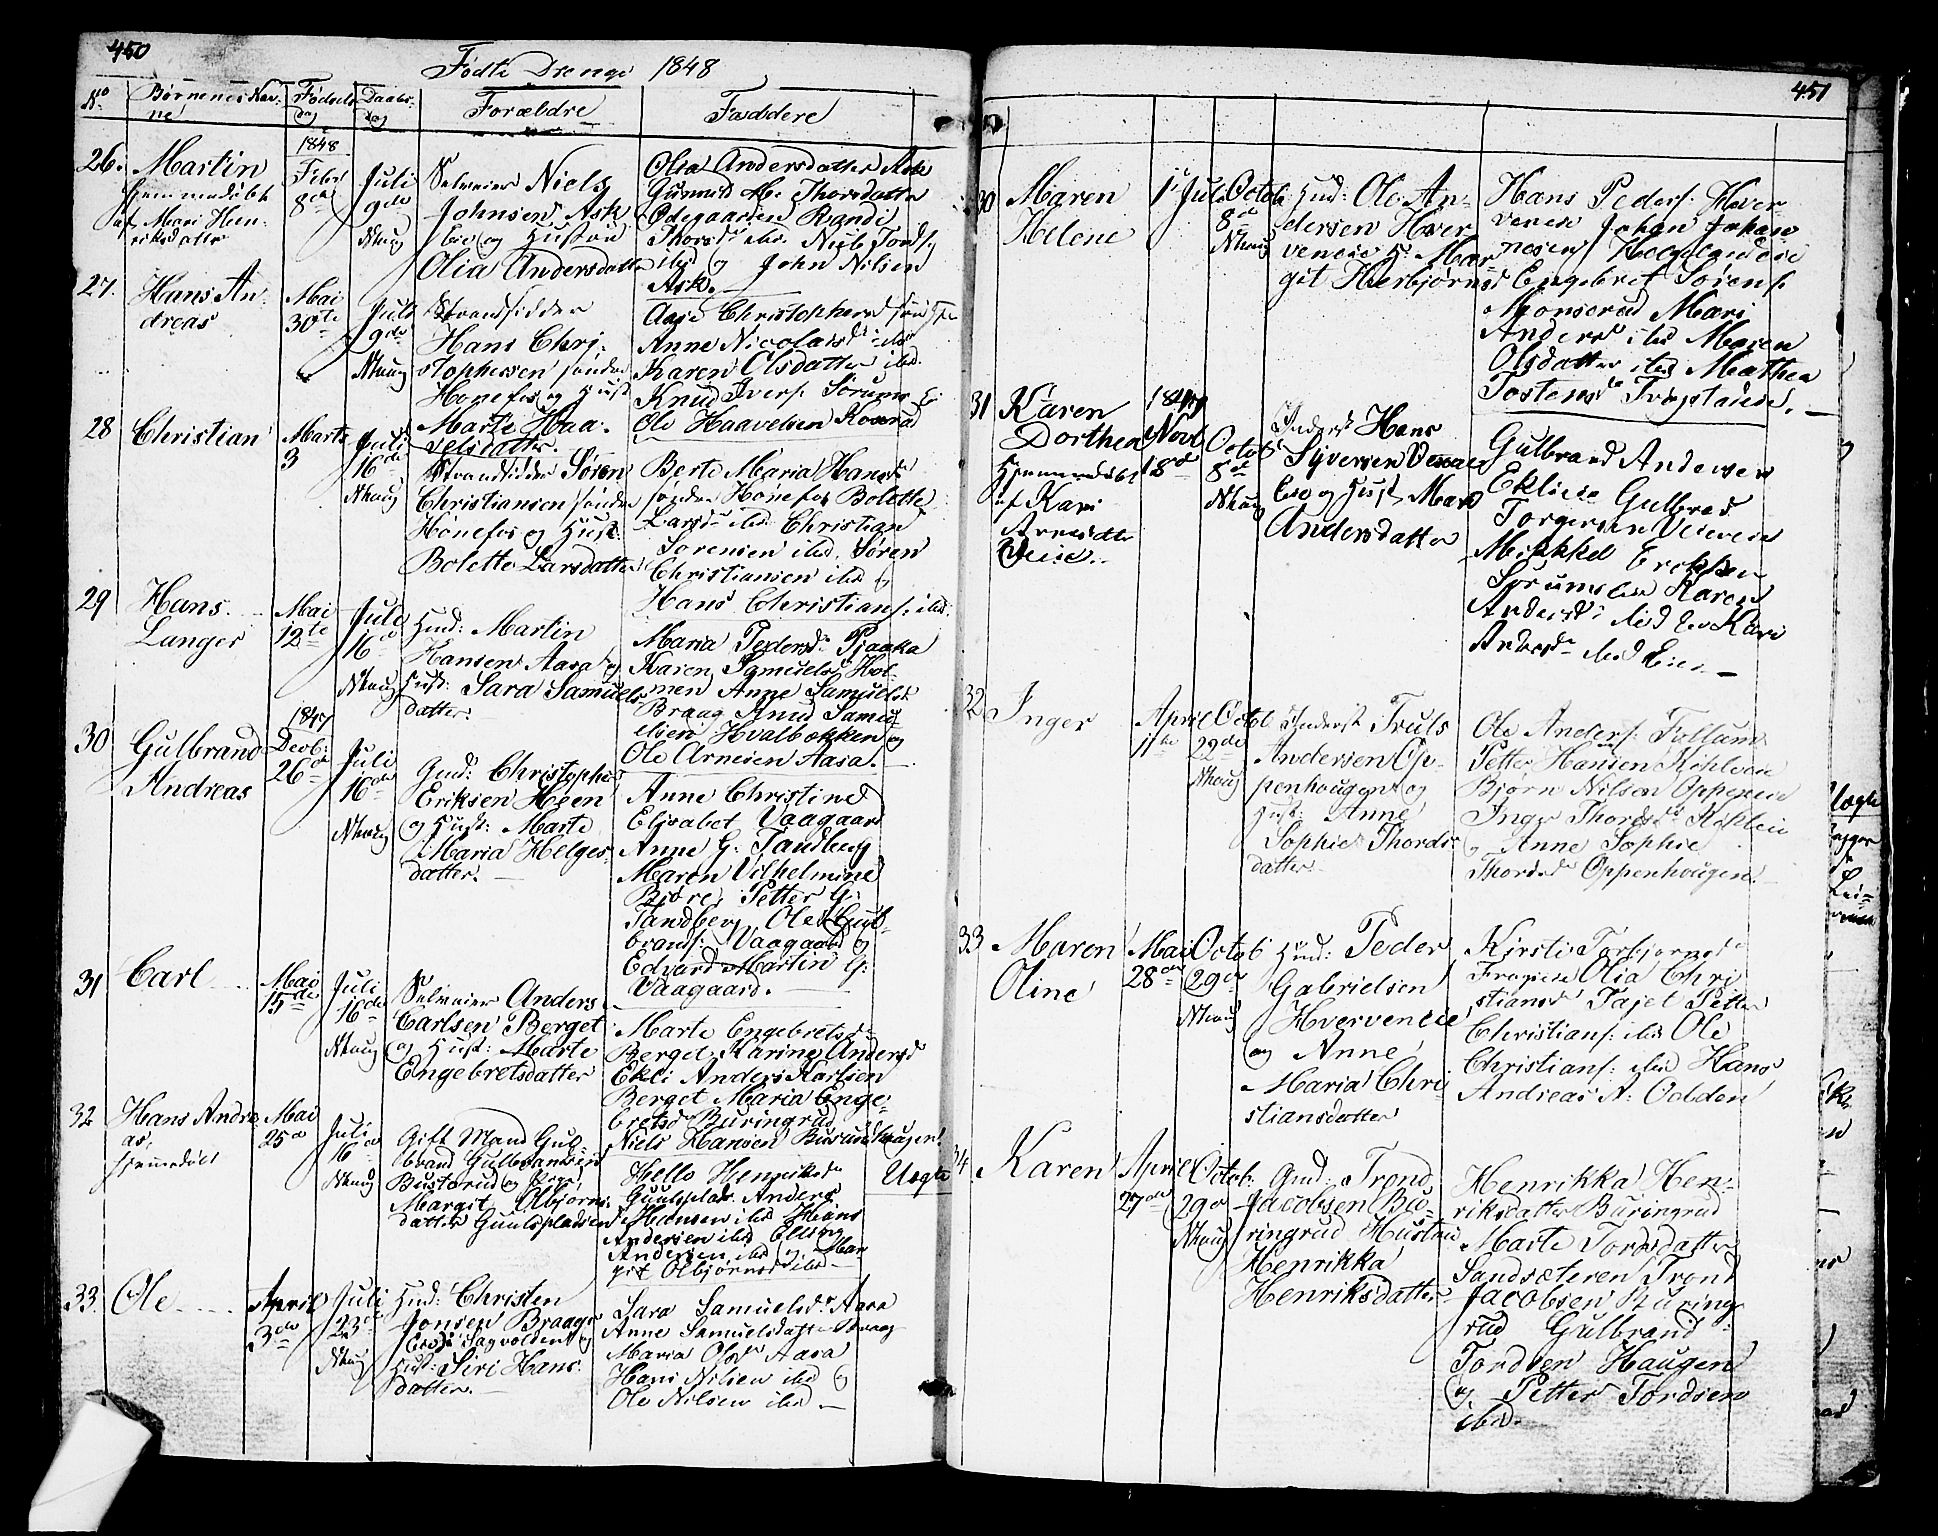 450
Fødte Drenge 1848
No Børnenes Nav-
ne
Fødsels
dag
Daabs-
dag
Forældre
Faddere
26. Martin
hjemmedøbt
af Mari Hen-
riksdatter
1848
Febr
8de
Juli
9de
Nhaug
Selveier Niels
Johnsen Ask
eie og Hustru
Olia Andersdatter
Olia Andersdatter Ask
Gunnild M. Thorsdatter
Odegaarden Randi
Thorsd. ibd. Niels Tords.
ibd og John Nilsen
Ask.
27. Hans An-
dreas
Mai
30te
Juli
9de
Nhaug
Strandsidder
Hans Chri-
stophersen søndre
Honefos og Hust
Marte Haa-
velsdatter.
Anne Nicolaisd. ibd
Karen Olsdatter ibd.
Knud Ivers. Sørum
Ole Haavelsen
28 Christian
Marts
3
Juli
16de
Nhaug
Strandsidder Søren
Christiansen søndre
Hönefos og Hust.
Bolette Larsdatter
Berte Maria Hansd
søndre Honefos Bolette
Larsd. ibd. Christian
Sorensen ibd. Søren
Christiansen ibd og
Hans Christians. ibd.
29 Hans
Langer
Mai
12te
Juli
16
Nhaug
Huud: Martin
Hansen Aasa og
Hust: Sara Samuels-
datter.
Maria Pedersd. Pjaaka
Karen Samuelsd Hol-
men Anne Samuelsd
Braag Knud Samu-
elsen Hvalbokken og
Ole Arnesen Aasa.
30 Gulbrand
Andreas
1847
Decb:
26
Juli
16de
Nhaug
Gmd: Christopher
Eriksen Heen
og Hust: Marte
Maria Helges-
datter.
Anne Christine
Elisabet Vaagaard
Anne G. Tandberg
Maren Vilhelmine
Bjøre, Petter G:
Tandberg, Ole Gul-
brands. Vaagaard og
Edvard Martin G:
Vaagaard.
31 Carl
Mai
15de
Juli
16de
Nhaug
Selveier Anders
Carlsen Berget
og Hust: Marte
Engebretsdatter
Marte Engebretsd
Berget Karine Andersd
Ekli Anders Karlsen
Berget Maria Enge-
bretsd Buringrud
Niels Hansen Busundhaugen.
32 Hans Andre-
as,
hjemmedøbt
Mai
25
Juli
16
Nhaug
Gift Mand Gul-
brand Gulbrandsen
Busterud og Pige
Margit Olbjørns-
datter Guulspladsen
Hello Henriksd
Guulsplads. Anders
Hansen ibd Hans
Andersen ibd Elling
Andersen ibd og Mar-
git Olbjørnsd ibd
Uægte
33. Ole
April
3de
Juli
23
Nhaug
Huud: Christen
Jonsen Braag
Eie Sagvolden og
Hust: Siri Hans-
datter.
Sara Samuelsd. Aasa
Anne Samuelsdatter Braag
Maria Olsd. Aasa
Hans Nilsen ibd og
Ole Nilsen ibd
451
30 Maren
Helene
1 Juli
Octob
8de
Nhaug
Huud: Ole An-
dersen Hver-
veneie H: Mar-
git Herbjørnsd
Hans Peders. Hver-
veneie Johan Johan-
nesen
Engebret Sørens.
Monserud Mari
Andersd ibd Maren
Olsdatter ibd Mathea
Tostensd. Trøgstadeie.
31 Karen
Dorthea
Hjemmedøbt
af Kari
Arnesdtr
Veie.
1847
Novb
18de
Octob
8de
Nhaug
Inderst Hans
Syversen Veme
Eie og Hust Mari
Andersdatter
Gulbrand Andersen
Eklieie Gulbrand
Torgersen Veieeie
Mikkel Eriksen
Sørumseie Karen
Andersd. ibd og Kari
Andersd. ibd Eie.
32 Inger
April
11te
Octob
22de
Nhaug
Inderst Truls
Andersen Op-
penhougen og
Hust: Anne
Sophie Thords-
datter.
Ole Anders. Follum
Petter Hansen Kihleie
Bjørn Nilsen Oppeneie
Inger Thordsd. Kihleie
og Anne Sophie
Thordsd Oppenhougen.
33 Maren
Oline
Mai
28de
Octob
29de
Nhaug
Huud: Peder
Gabrielsen
Hverveneie
og Anne
Maria Chri-
stiansdatter
Kirsti Torbjørnsd
Frogneie Olia Chri-
stiansd Tajet Petter
Christians. ibd Ole
Christians. ibd Hans
Andreas A. Oolden
34 Karen
April
27de
Octob
29de
Nhaug
Gmd: Trond
Jacobsen Bu-
ringrud Hustru
Henrikka
Henriksdatter
Henrikka Hen-
riksdatter Buringrud
Marte Tordsdatter
Sandsæteren Trond
Jacobsen Buring-
rud Gulbrand
Tordsen Haugen
og Petter Tordsen
ibd.